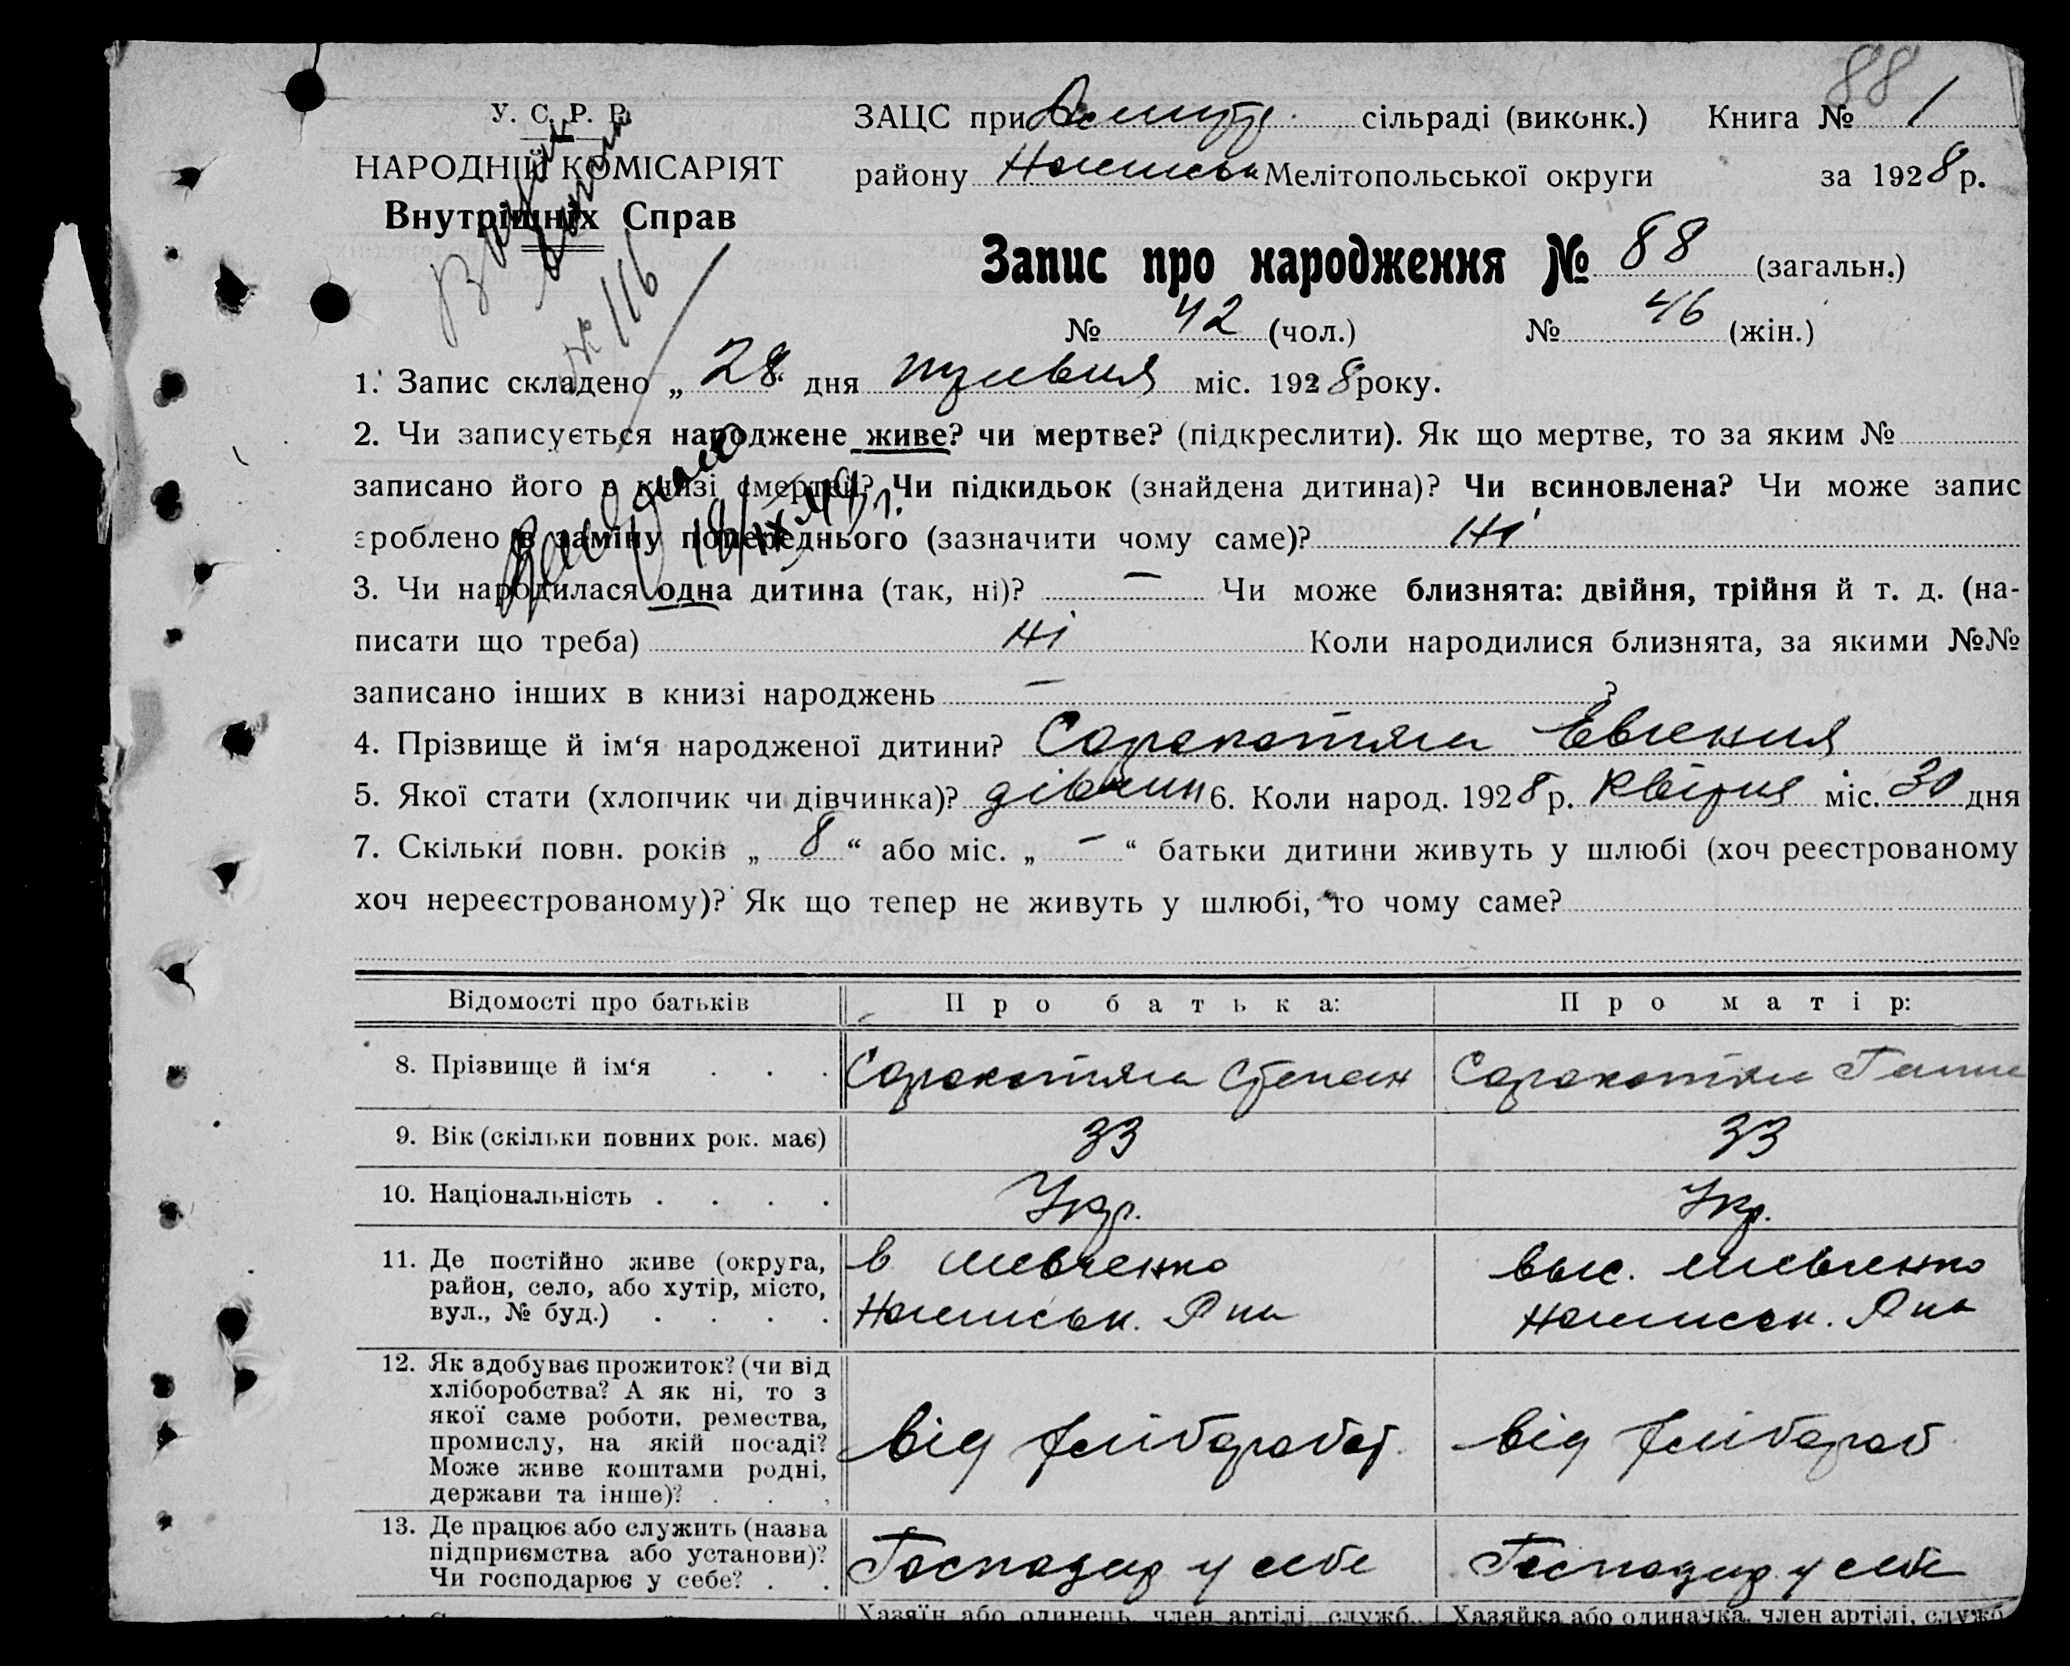 88
У. С. Р. Р.
НАРОДНІЙ КОМІСАРІЯТ
Внутрішніх Справ
№ 116
ЗАЦС при сільраді (виконк.) Книга № 1
району Мелітопольської округи за 1928 р.
Запис про народження № 88 (загальн.)
№ 42 (чол.) № 46 (жін.)
1. Запис складено „ 28 “ дня міс. 1928 року.
2. Чи записується народжене живе? чи мертве? (підкреслити). Як що мертве, то за яким №
записано його в книзі смертей? Чи підкидьок (знайдена дитина)? Чи всиновлена? Чи може запис
зроблено в заміну попереднього (зазначити чому саме)? Ні
3. Чи народилася одна дитина (так, ні)? — Чи може близнята: двійня, трійня й т. д. (на-
писати що треба) Ні Коли народилися близнята, за якими №№
записано інших в книзі народжень — ?
4. Прізвище й ім‘я народженої дитини? Сорокотяга Евгения
5. Якої стати (хлопчик чи дівчинка)? дівчин 6. Коли народ. 1928 р. Квітня міс. 30 дня
7. Скільки повн. років „ 8 “ або міс. „ — “ батьки дитини живуть у шлюбі (хоч реєстрованому
хоч нереєстрованому)? Як що тепер не живуть у шлюбі, то чому саме?
Відомості про батьків Про батька: Про матір:
8. Прізвище й ім‘я . . . Сорокотяга Степан Сорокотяга Ганна
9. Вік (скільки повних рок. має) 33 33
10. Національність . . . . Укр. Укр.
11. Де постійно живе (округа, в Шевченко вис. Шевченко
район, село, або хутір, місто,
вул., № буд.) . . . .
12. Як здобуває прожиток? (чи від
хліборобства? А як ні, то з
якої саме роботи, ремества,
промислу, на якій посаді? від хлібороб від хлібороб
Може живе коштами родні,
держави та інше)? . . .
13. Де працює або служить (назва
підприємства або установи)? Господар у себе Господар у себе
Чи господарює у себе? . .
Хазяїн або одинець, член артілі, служб. Хазяйка або одиначка, член артілі, служб.